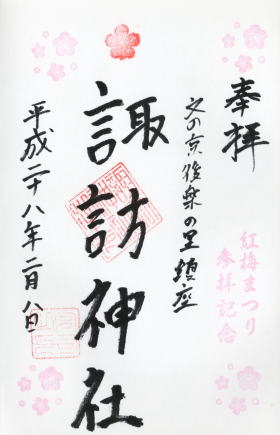 奉拝
紅梅まつり
参拝記念
文の京後楽の里鎮座
諏訪神社
平成二十八年二月八日